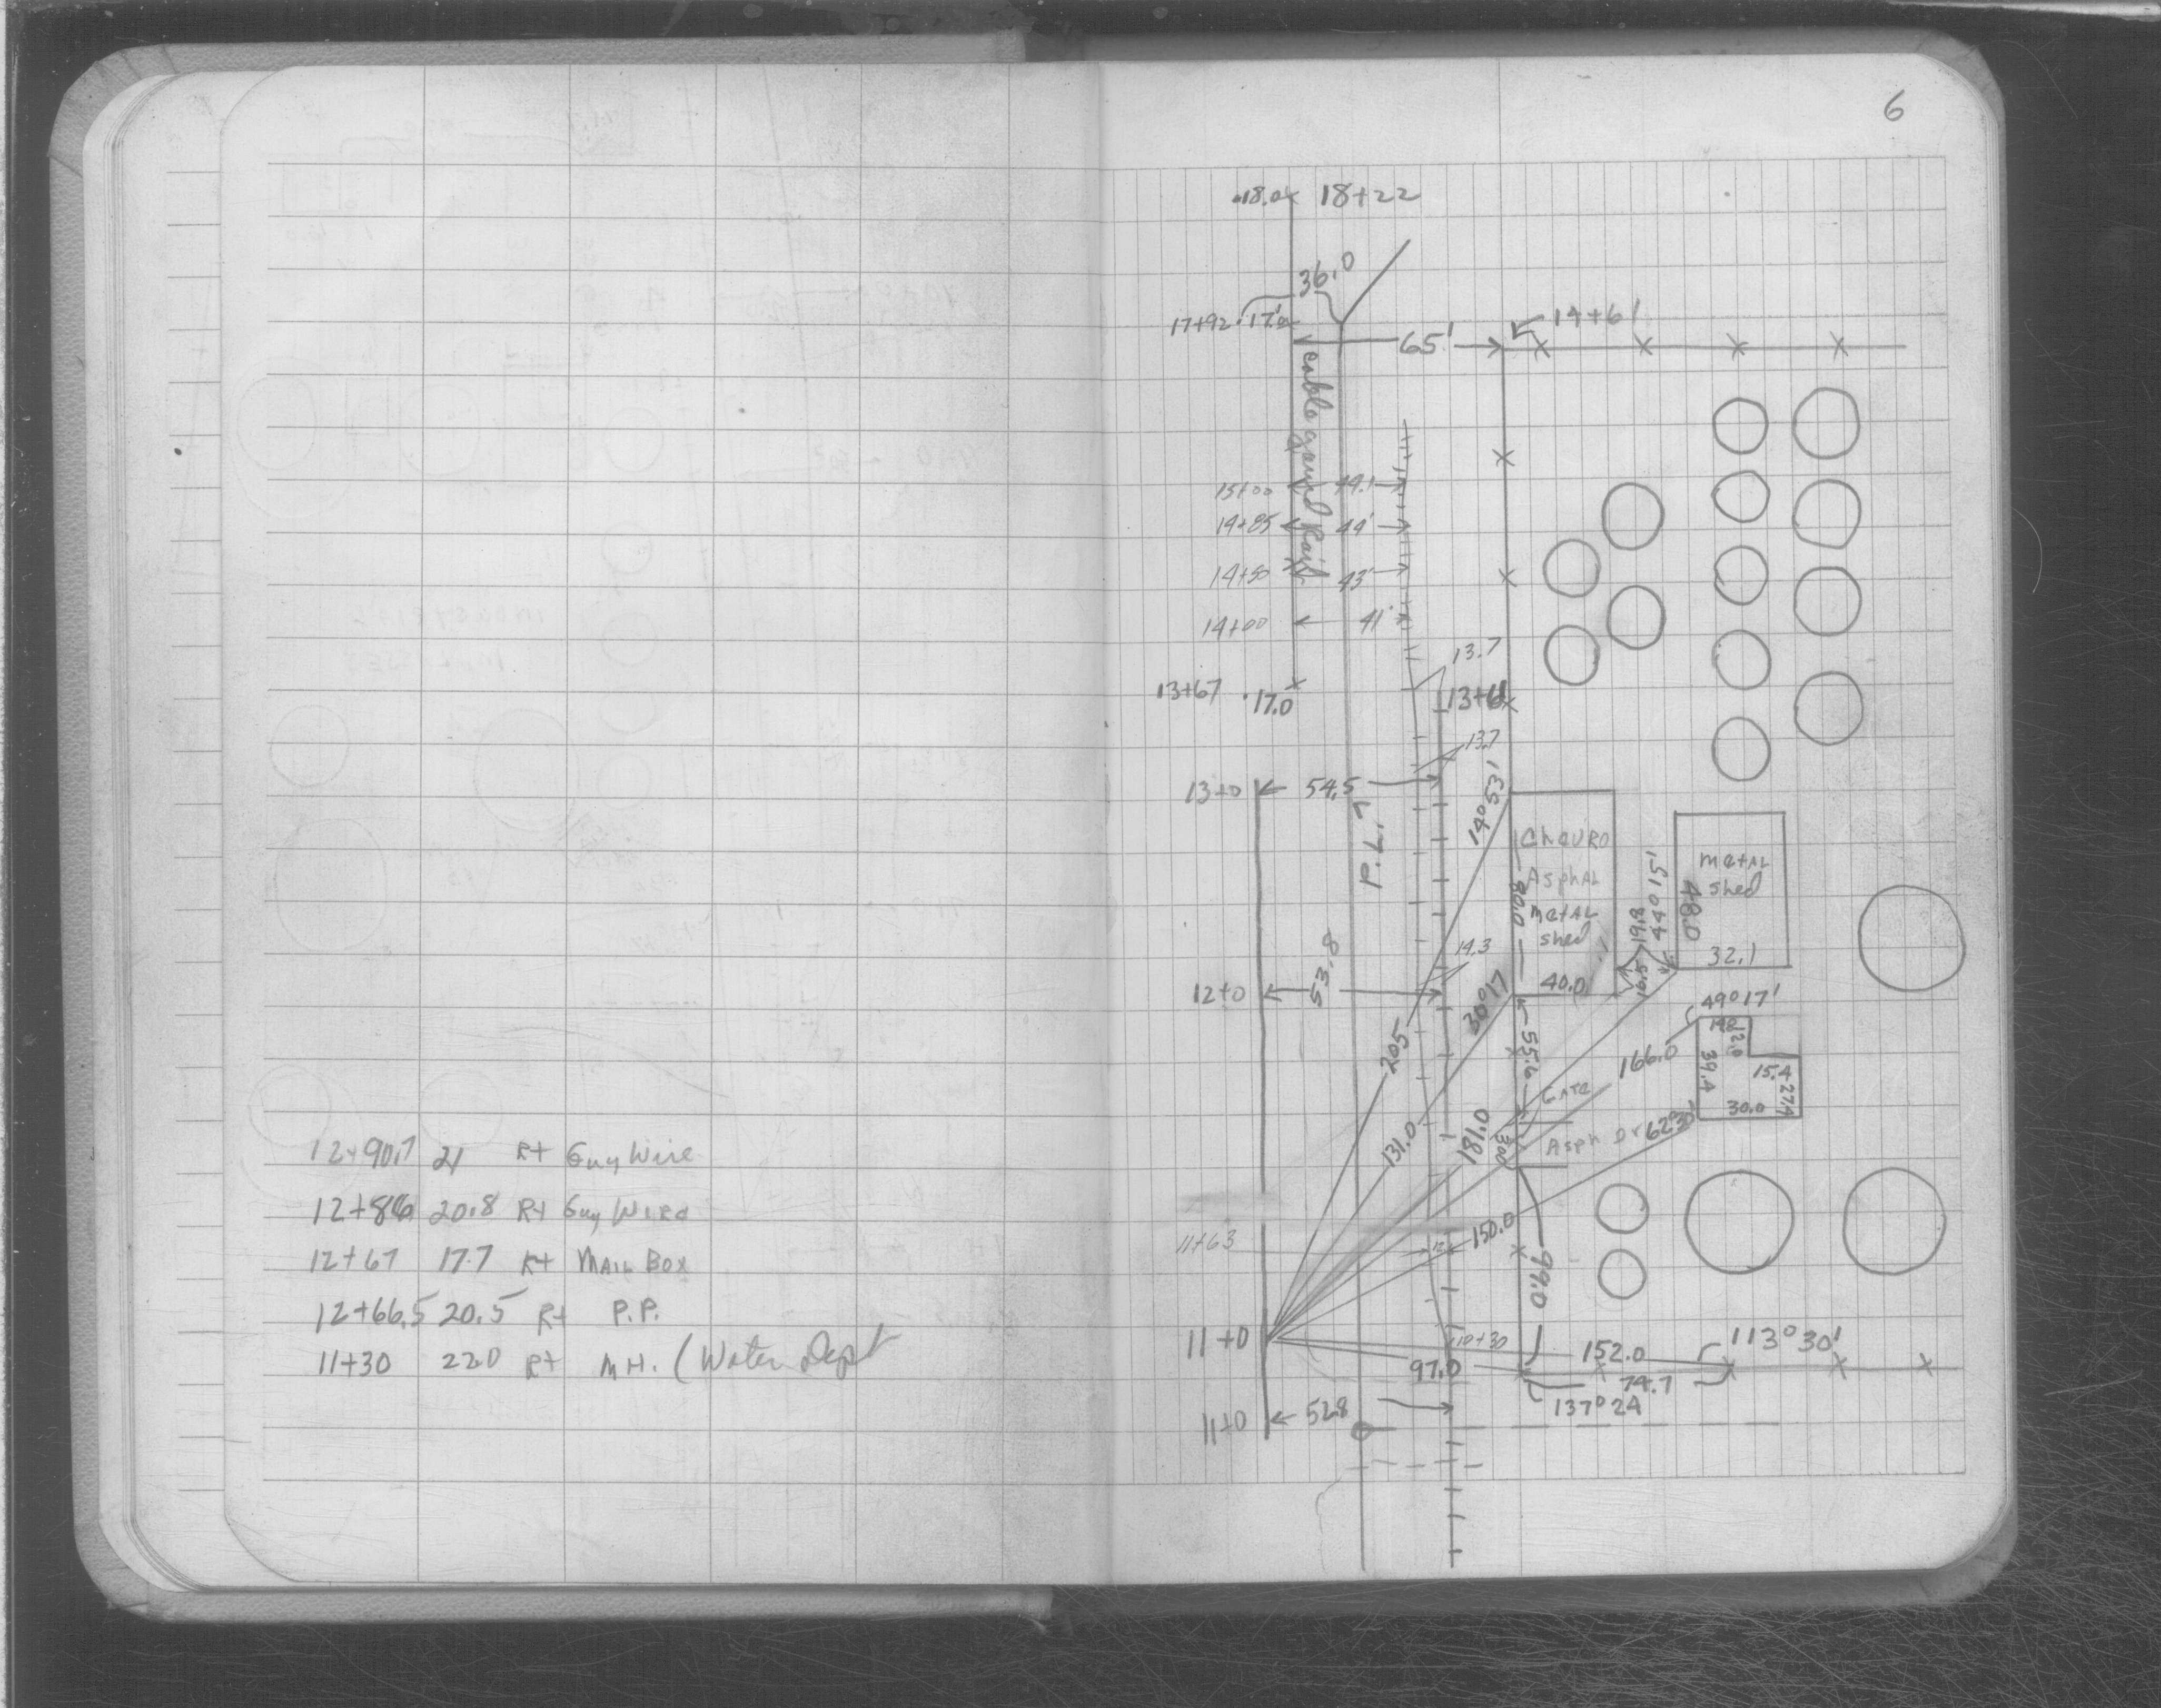 12+90.7 21 Rt Guy Wire
12+86 20.8 Rt Guy Wire
12+67 17.7 Rt MAIL BOX
12+66.5 20.5 Rt P.P.
11+30 22.0 Rt M.H. (Water Dept
6
18.0 18+22
36.0
17+92 17.0
65' 14+61
cable guard Rail
15+00 49.1
14+85 44'
14+50 43'
14+00 41'
13.7
13+67 17.0
13+61
13.7
13+0 54.5
14° 53'
P.L.
Chevro
Asphal
Metal
shed
80.0
40.0
metal
shed
48.0
32.1
44° 15'
19.8
16.5
14.3
12+0 53.8
30° 17
49° 17'
19.2
12.0
39.4
15.4
27.4
30.0
205
55.6
166.0
Gate
131.0
181.0
30.0
Asph Dr
62° 30'
11+63
12
150.0
99.0
11+0
10+30
97.0
152.0
113° 30'
74.7
137° 24
11+0 52.8